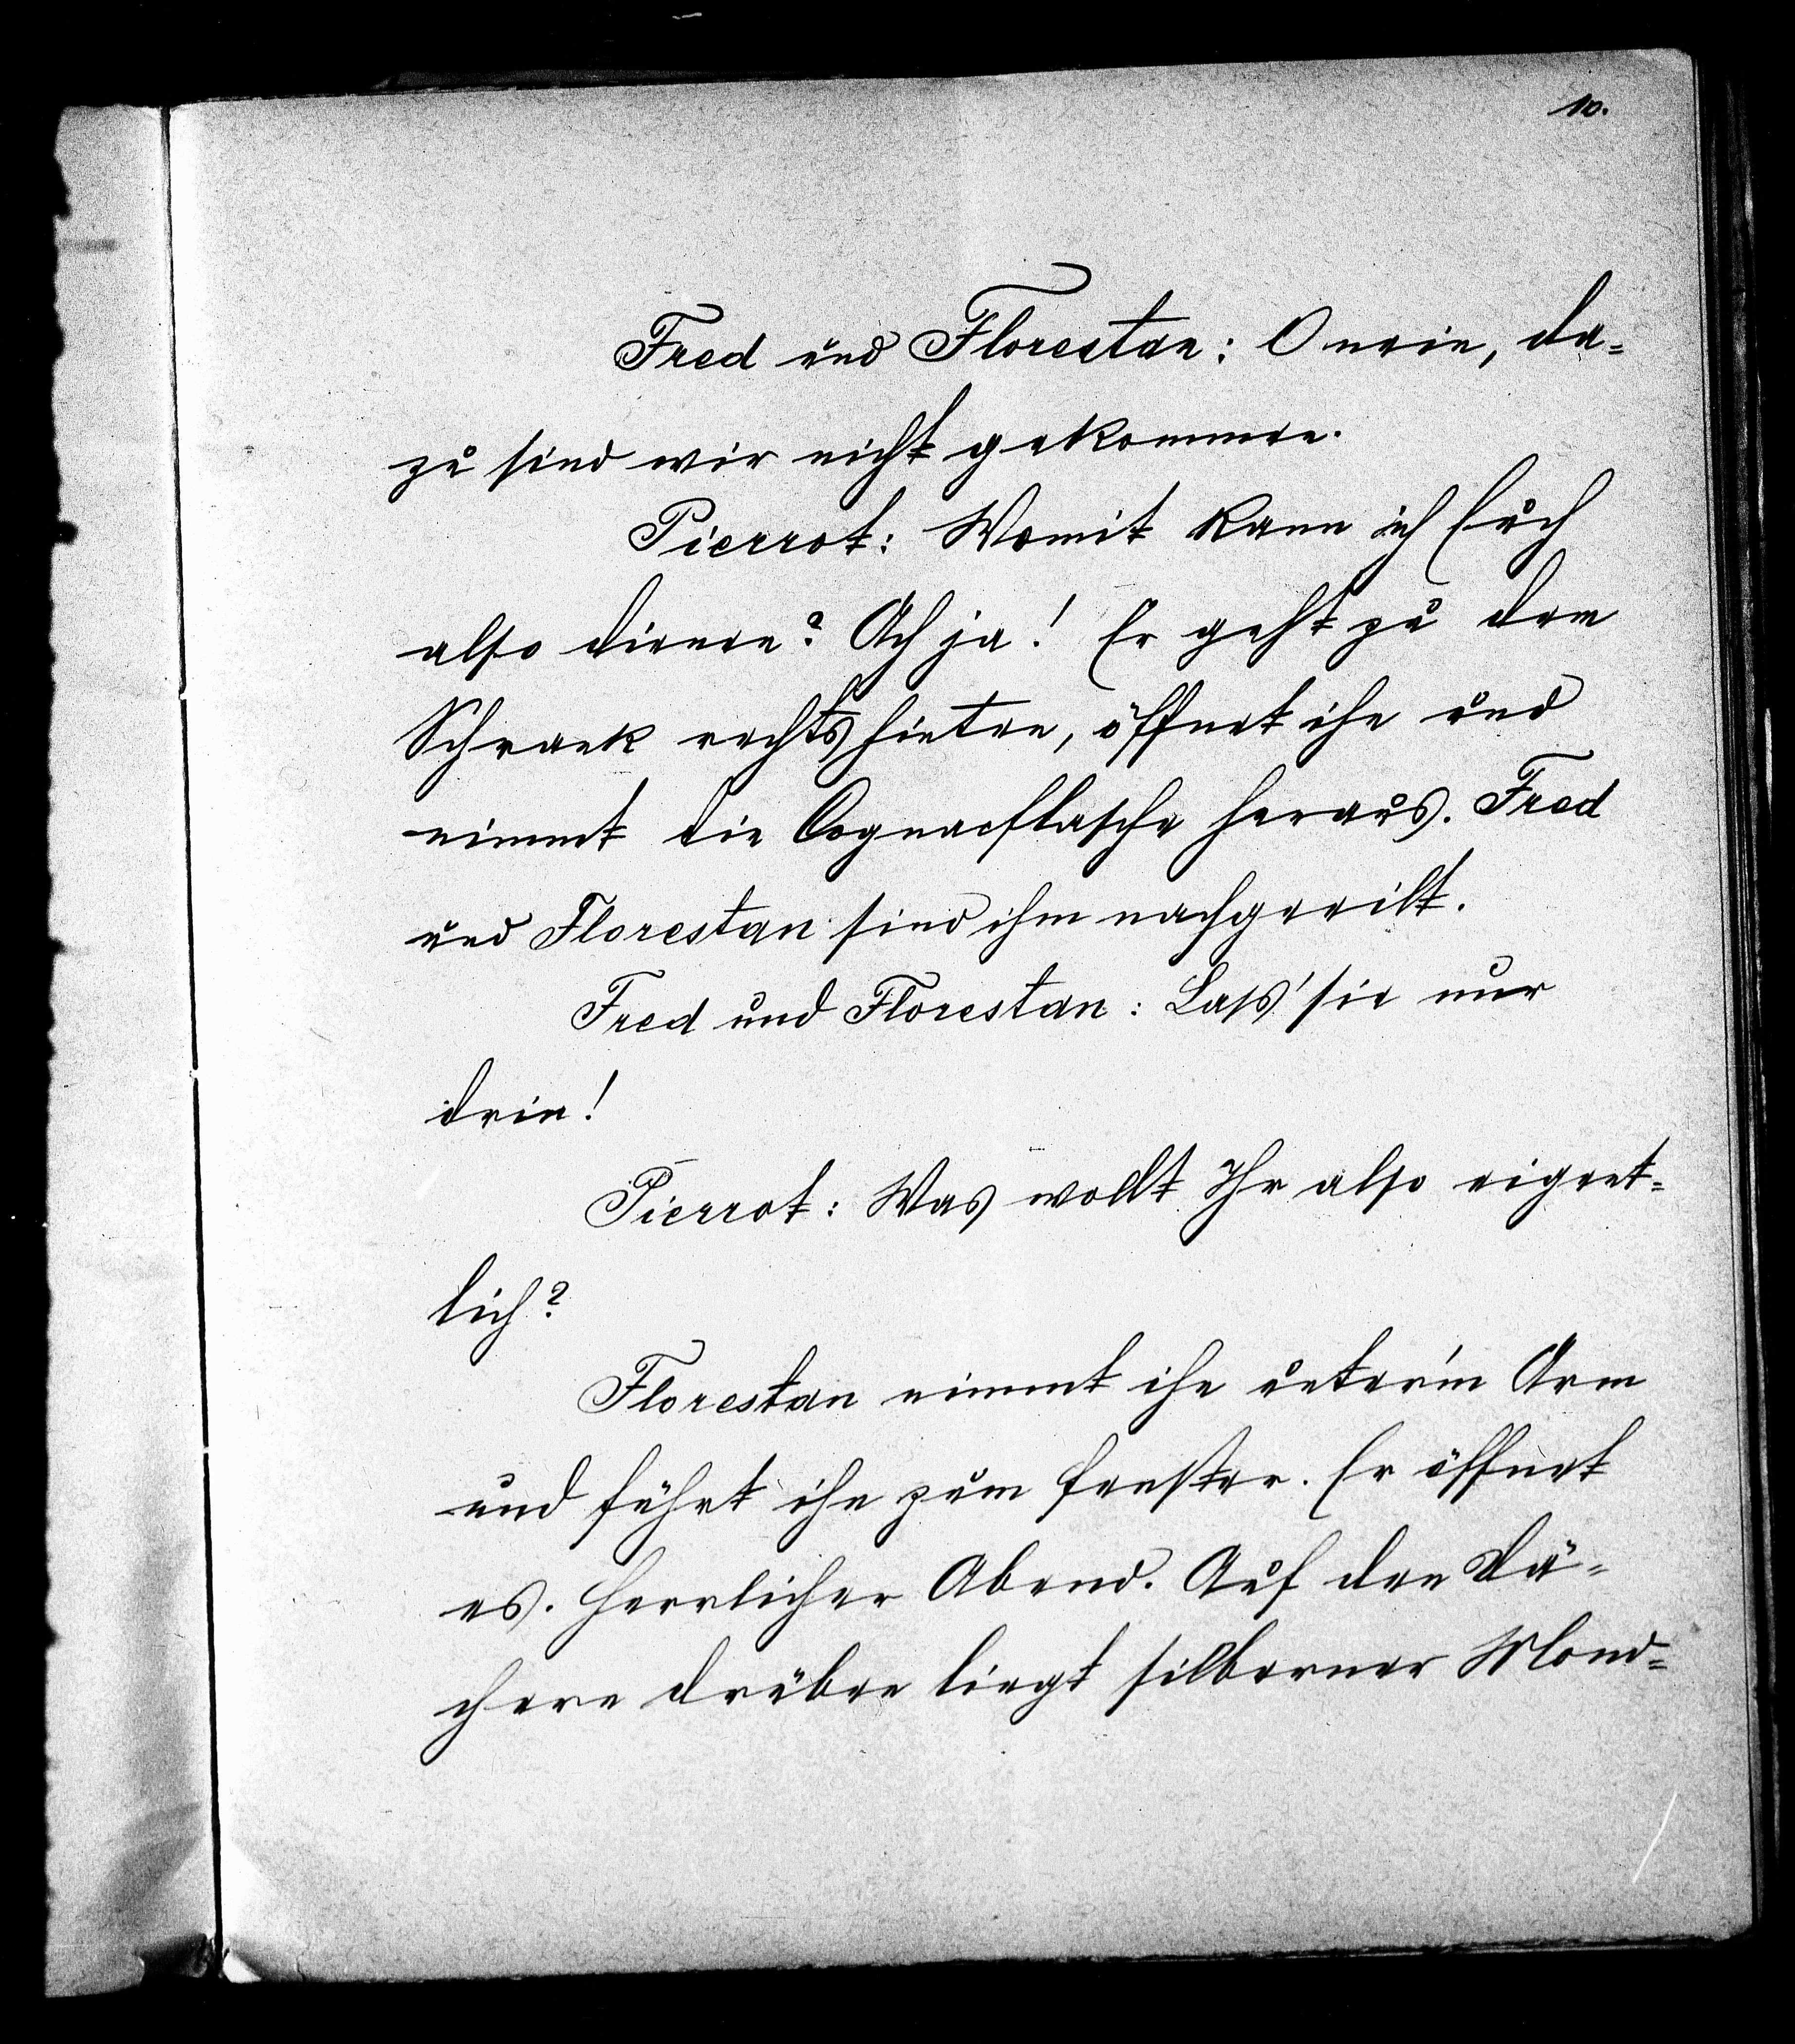 10.
Fred und Florestan: O nein, da=
zu sind wir nicht gekommen.
Pierrot: Womit kann ich Euch
also dienen? Ach ja! Er geht zu dem
Schrank rechts hinten, öffnet ihn und
nimmt die Cognacflasche heraus. Fred
und Florestan sind ihm nachgeeilt.
Fred und Florestan: Lass' sie nur
drin!
Pierrot: Was wollt Ihr also eigent=
lich?
Florestan nimmt ihn unter'm Arm
und führt ihn zum Fenster. Er öffnet
es. Herrlicher Abend. Auf den Dä=
chern drüben liegt silberner Mond=